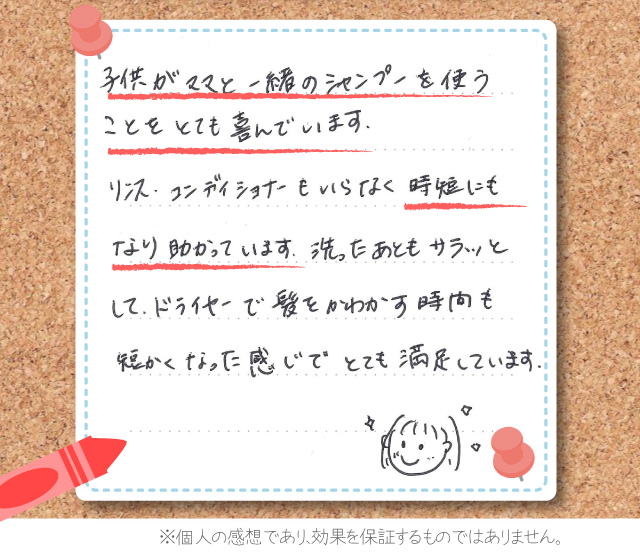 子供がママと一緒のシャンプーを使う
ことをとても喜んでいます.
リンス.コンディショナーもいらなく時短にも
なり助かっています.洗ったあともサラッと
して.ドライヤーで髪をかわかす時間も
短かくなった感じでとても満足しています.
※個人の感想であり、効果を保証するものではありません。